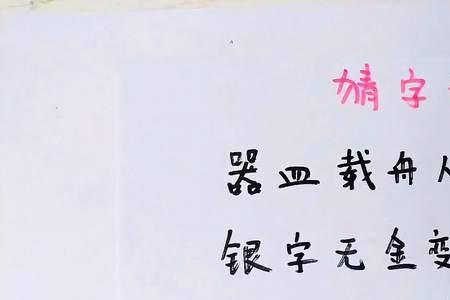 猜字
器皿载舟
银字无金变